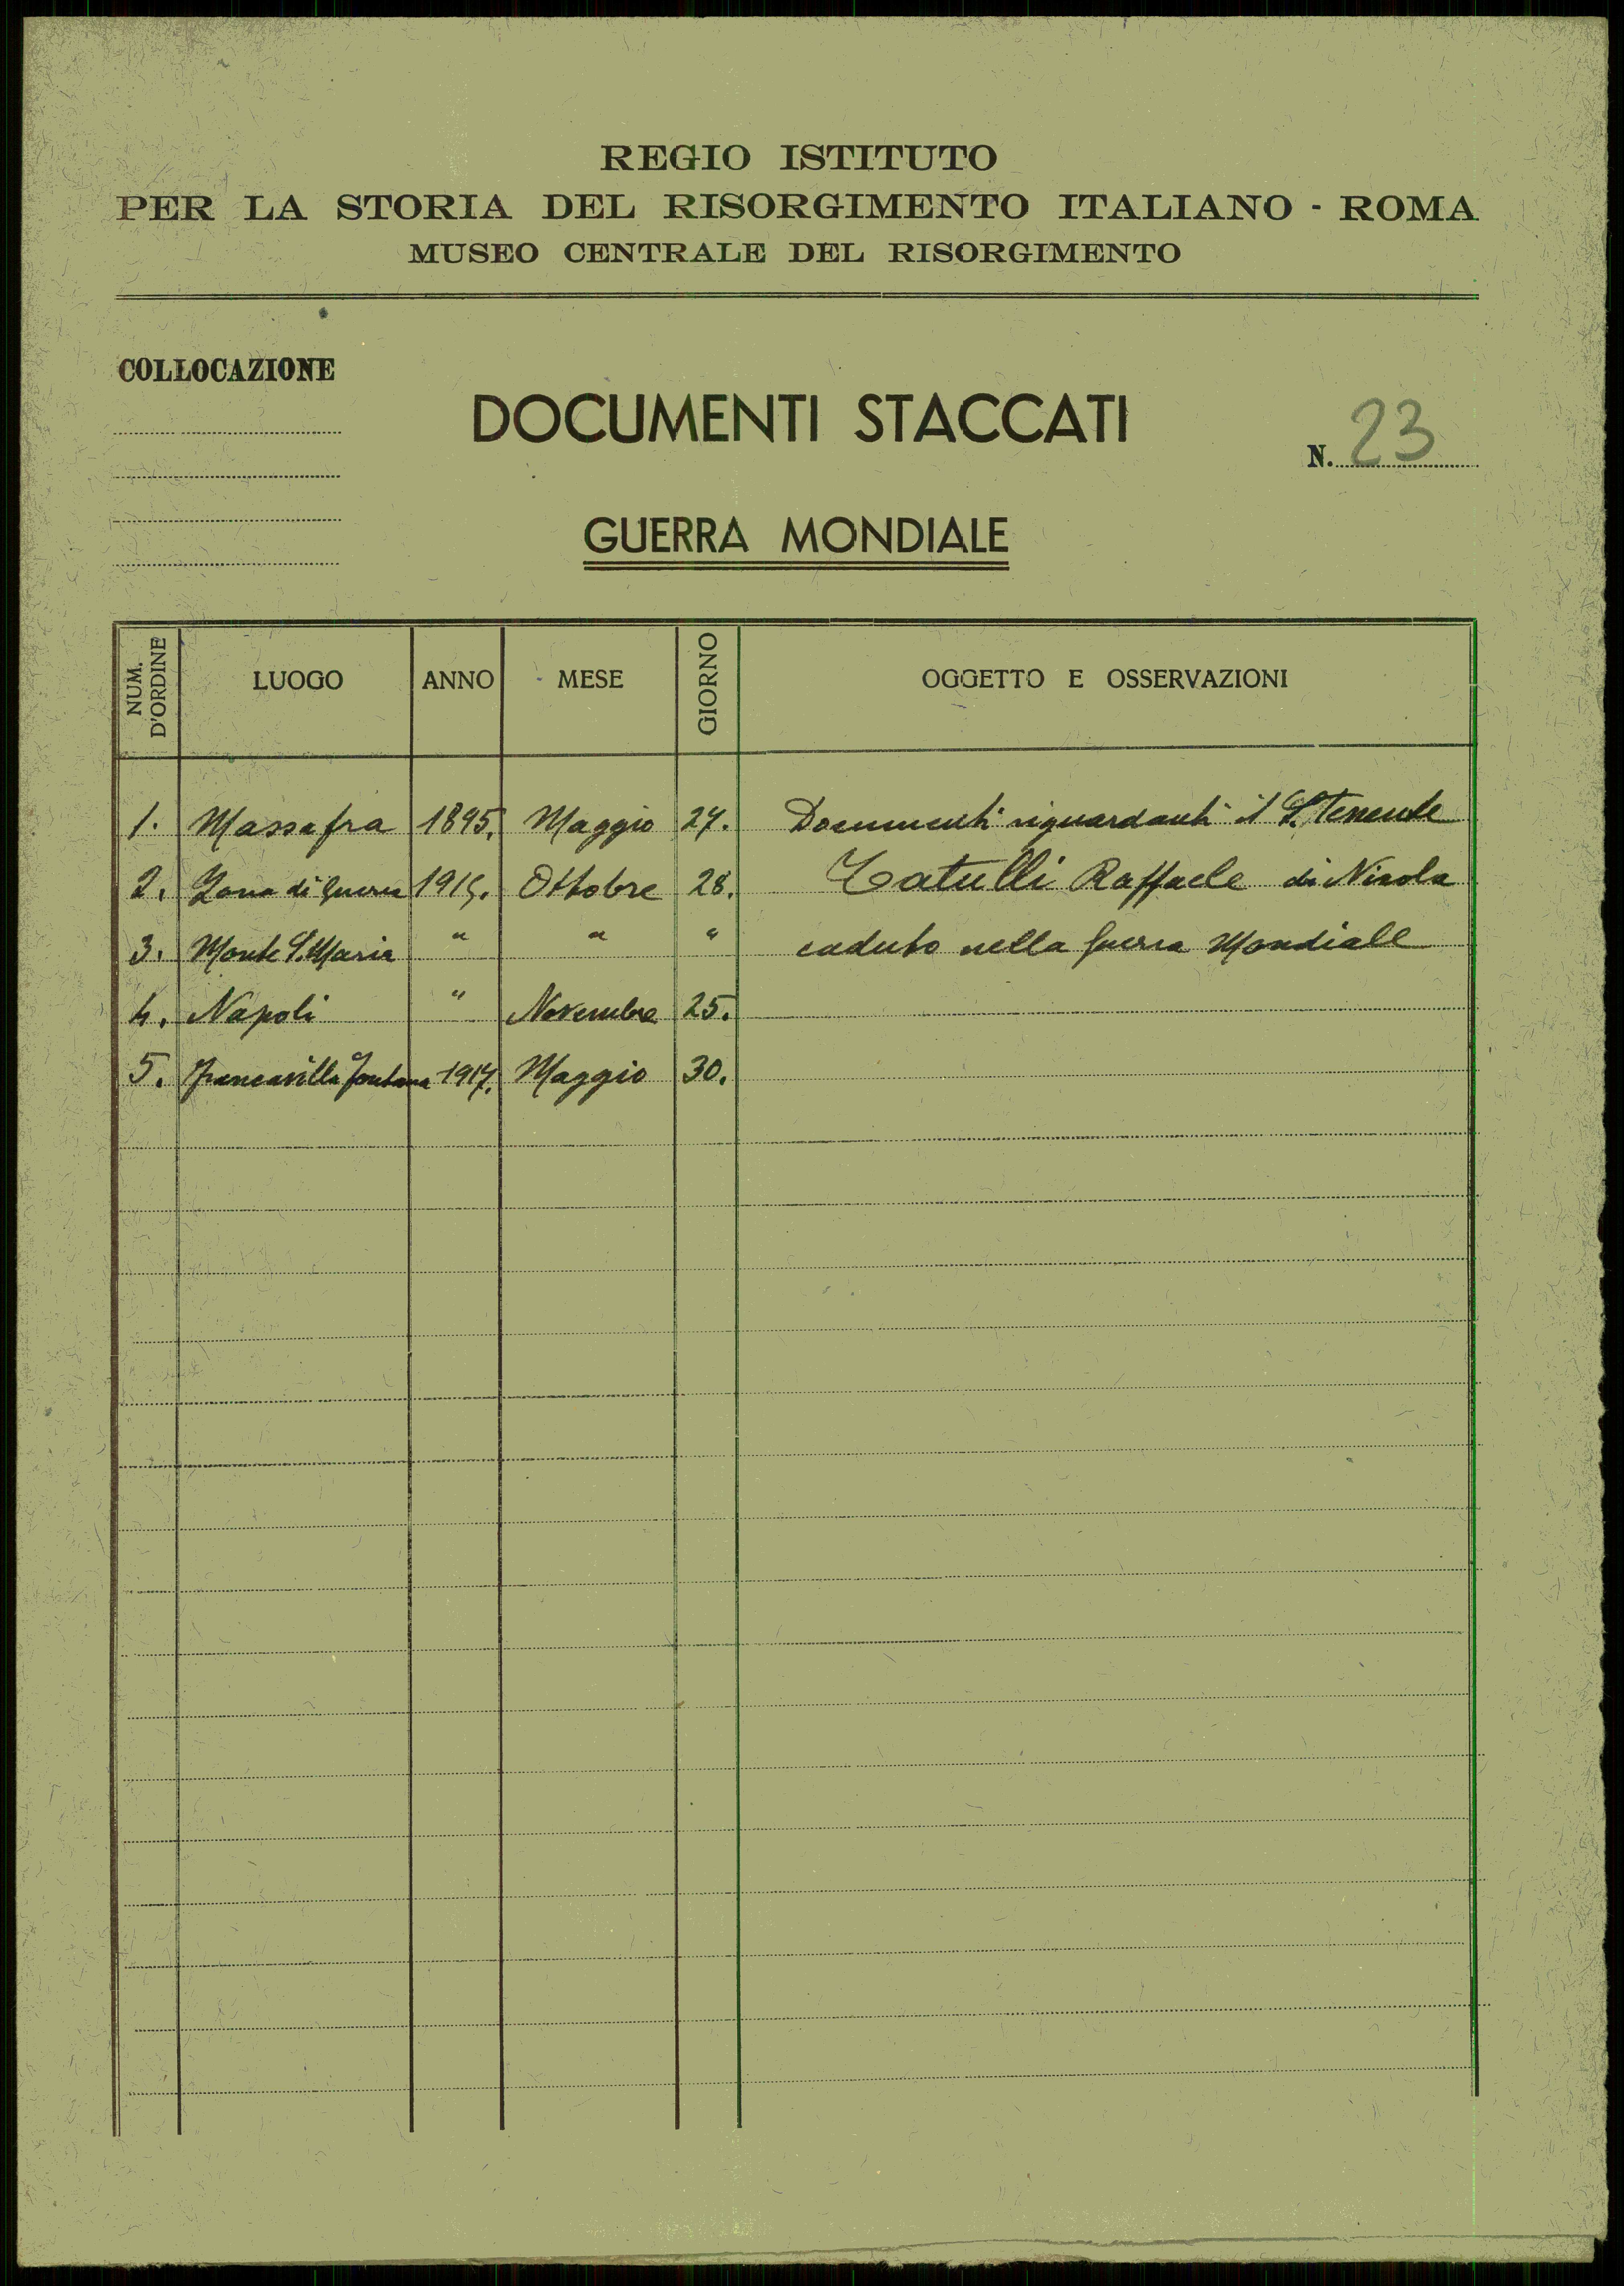 REGIO ISTITUTO
PER LA STORIA DEL RISORGIMENTO ITALIANO - ROMA
MUSEO CENTRALE DEL RISORGIMENTO
COLLOCAZIONE
DOCUMENTI STACCATI
N. 23
GUERRA MONDIALE
NUM. D'ORDINE LUOGO ANNO MESE GIORNO OGGETTO E OSSERVAZIONI
1. Massafra 1895. Maggio 27. Documenti riguardanti il S. Tenente
2. Zona di Guerra 1915. Ottobre 28. Catulli Raffaele di Nicola
3. Monte S. Maria " " " caduto nella Guerra Mondiale
4. Napoli " Novembre 25.
5. Francavilla Fontana 1917. Maggio 30.